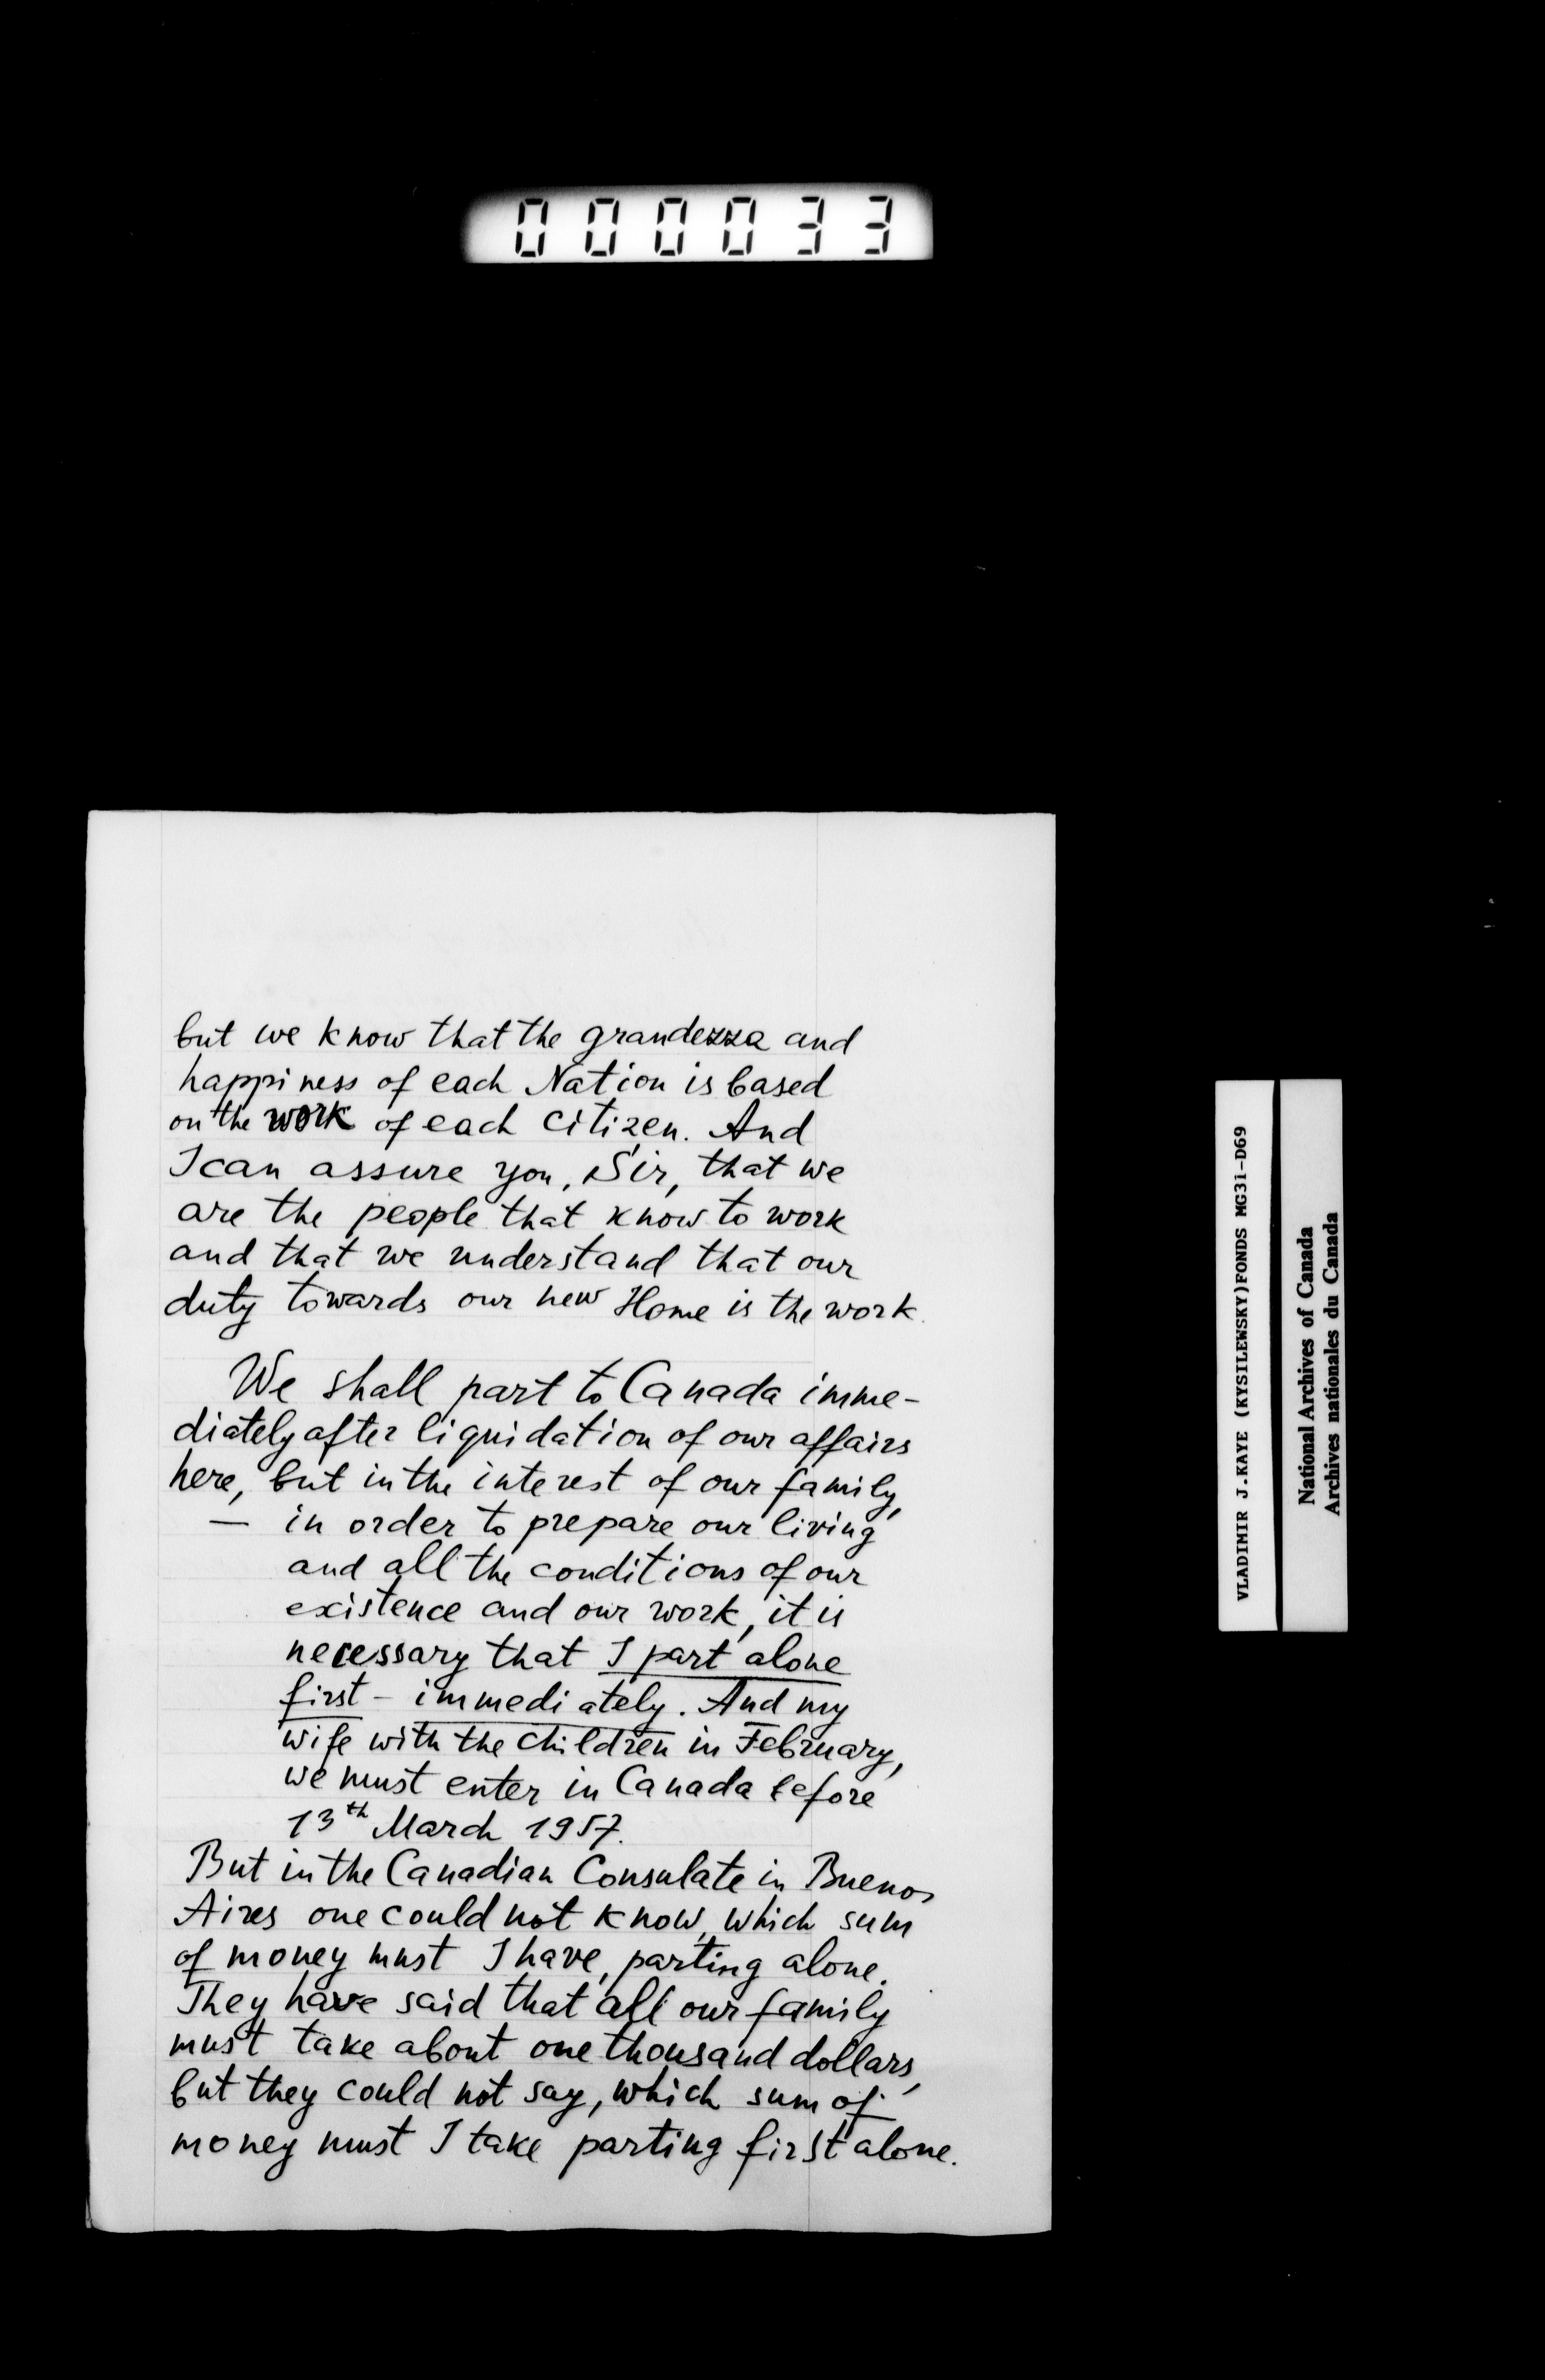 000033
but we know that the grandezza and
happiness of each Nation is based
on the work of each citizen. And
I can assure you, Sir, that we
are the people that know to work
and that we understand that our
duty towards our new Home is the work.
We shall part to Canada imme-
diately after liquidation of our affairs
here, but in the interest of our family,
— in order to prepare our living
and all the conditions of our
existence and our work, it is
necessary that I part alone
first - immediately. And my
wife with the children in February,
we must enter in Canada before
13th March 1957.
But in the Canadian Consulate in Buenos
Aires one could not know, which sum
of money must I have, parting alone.
They have said that all our family
must take about one thousand dollars,
but they could not say, which sum of
money must I take parting first alone.
VLADIMIR J.KAYE (KYSILEWSKY)FONDS MG31-D69
National Archives of Canada
Archives nationales du Canada